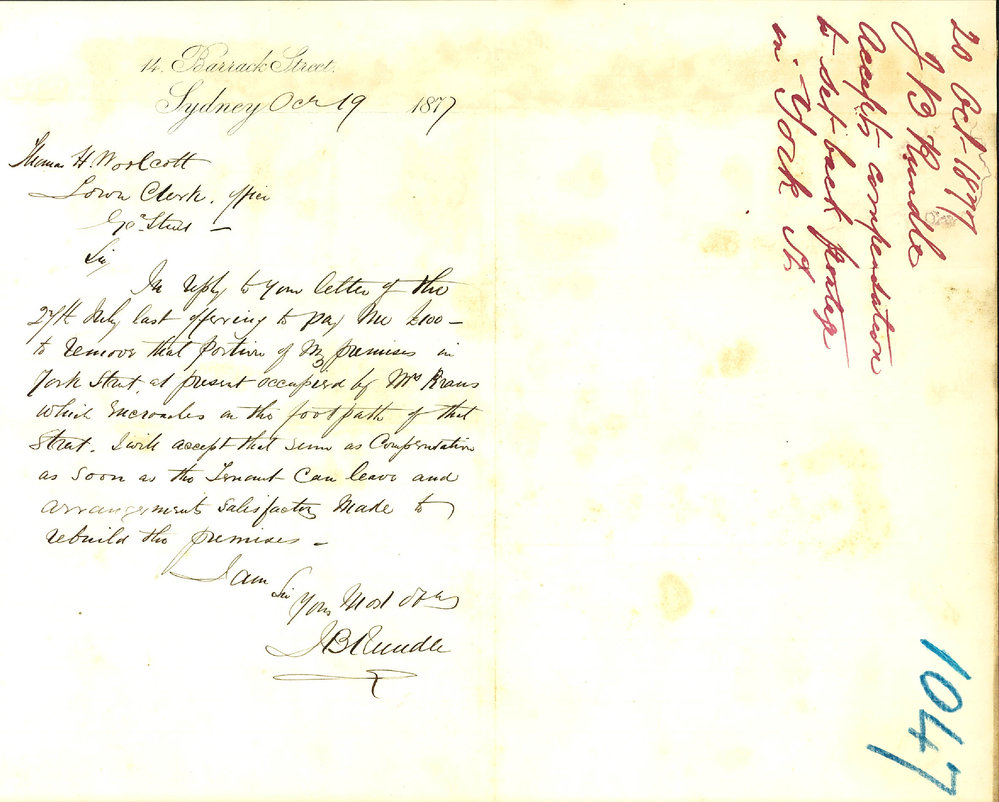 14. Barrack Street.
Sydney Oct 19 1877
Thomas H Woolcott
Town Clerk. Office
Geo. Street –
Sir
In reply to your letter of the
27th July last offering to pay Me £100 –
to remove that portion of My premises in
York Street at present occupied by Mrs
which encroaches on the footpath of that
Street. I will accept that sum as Compensation
as soon as the Tenant can leave and
arrangements satisfactory Made to
rebuild the premises –
I am
Sir
Your Most
J B Rundle
20 Oct 1877
J B Rundle
Accepts compensation
to set back frontage
in York St.
1047